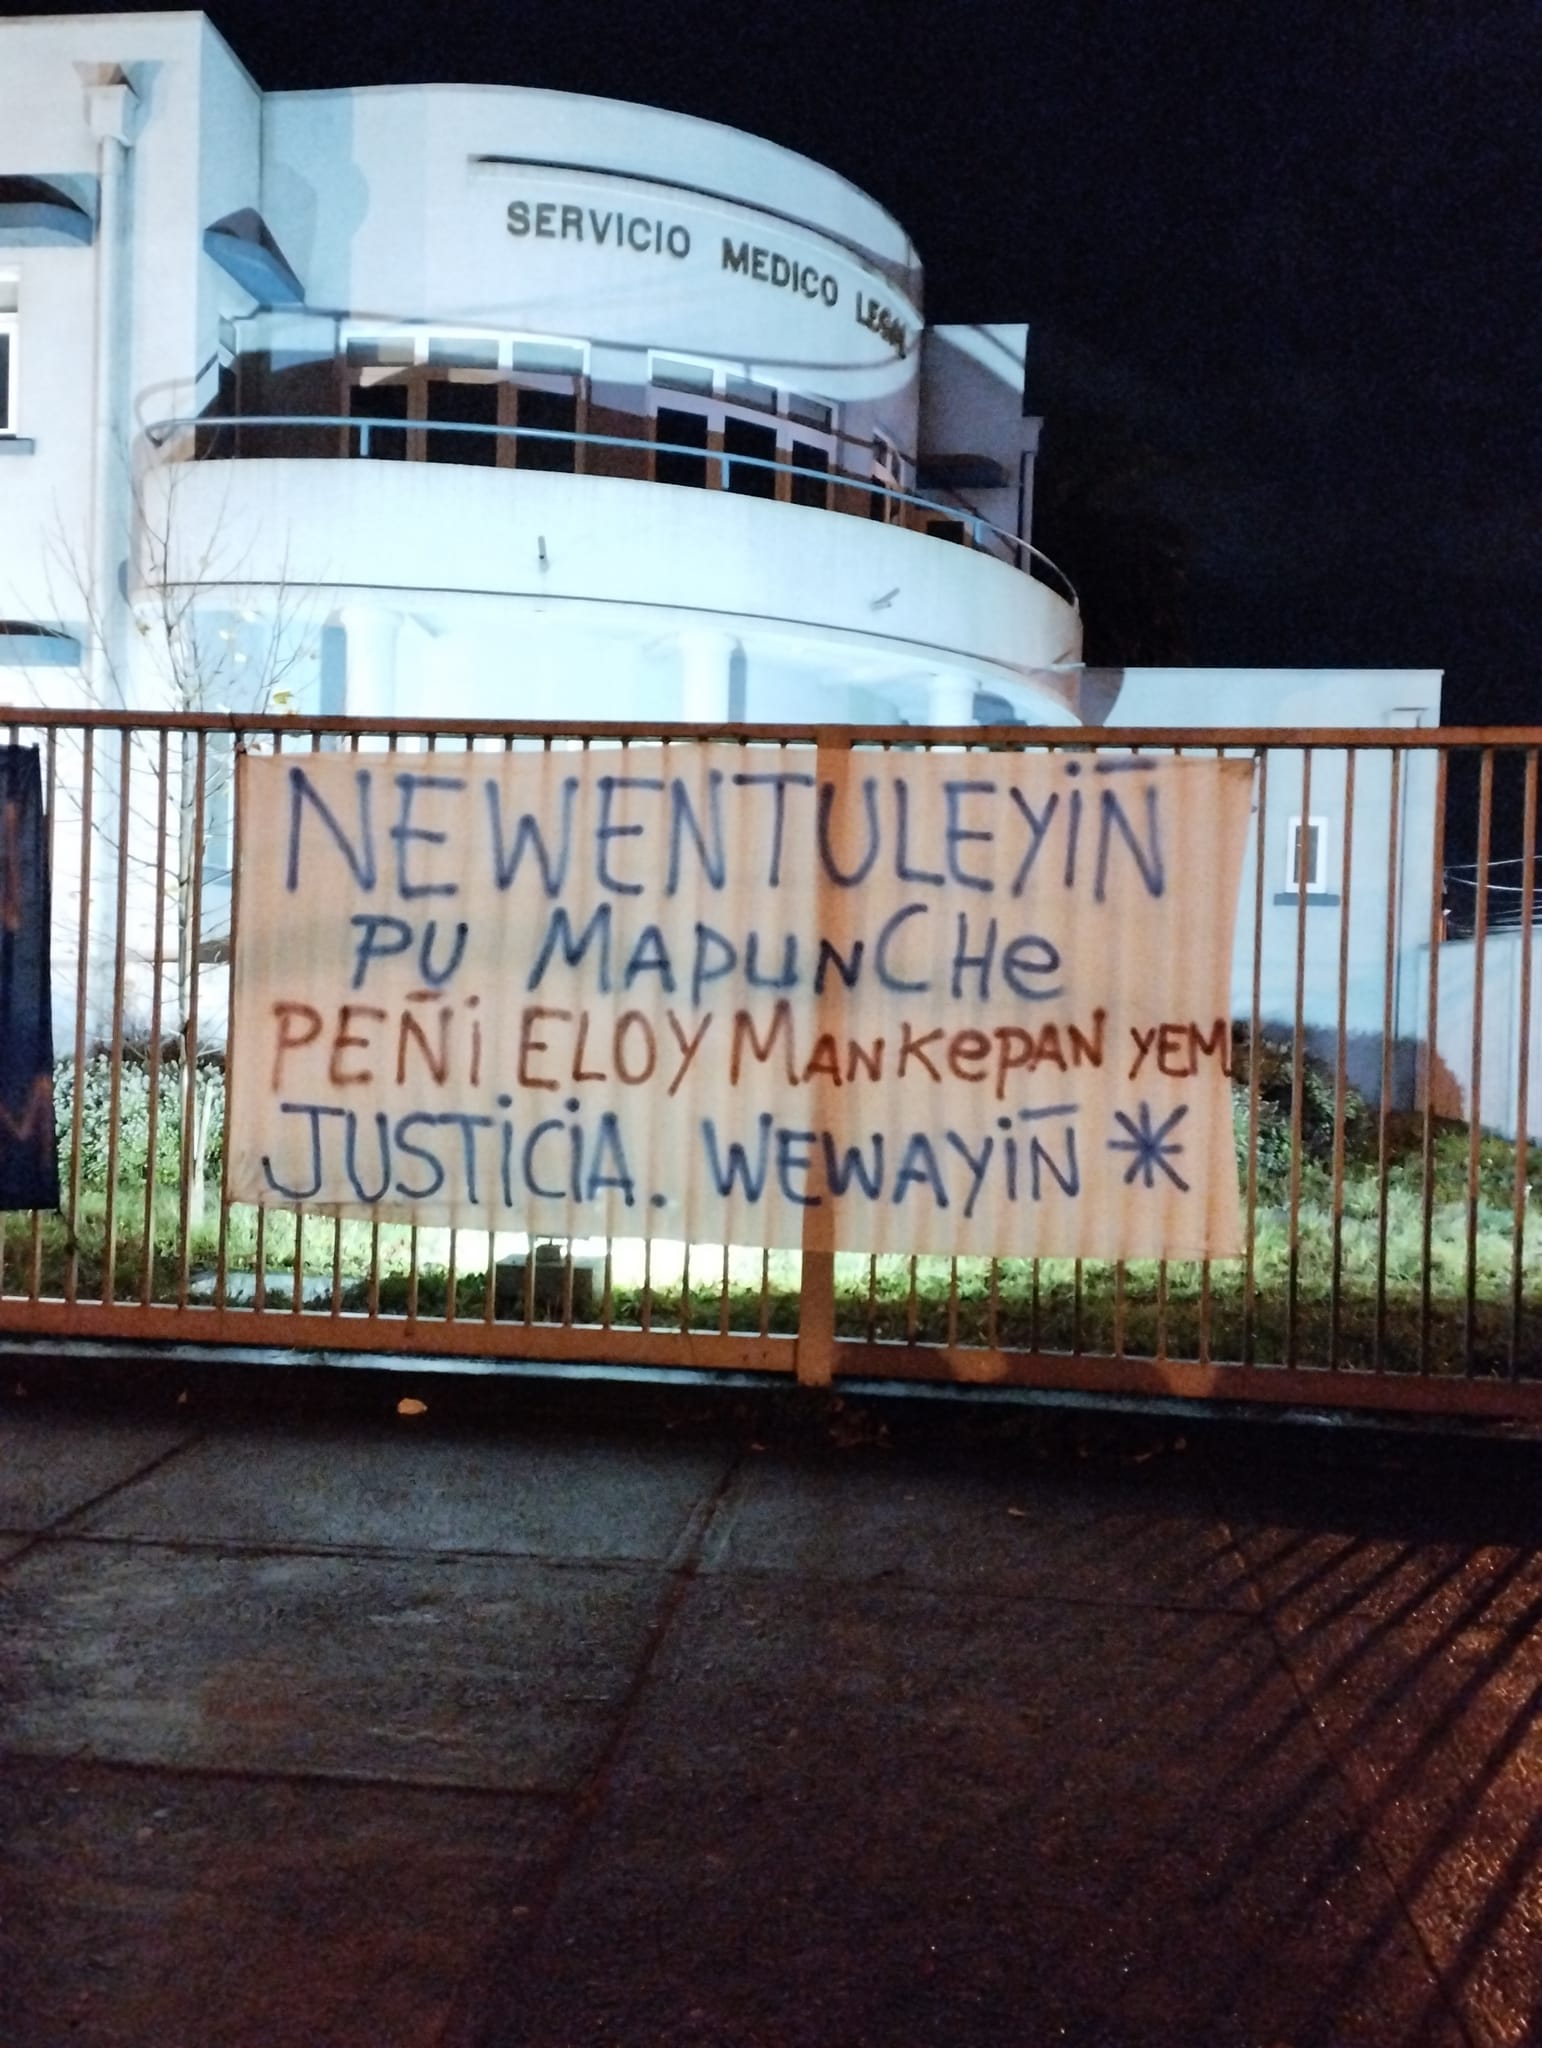 SERVICIO MEDICO LEGAL
NEWENTULEYIÑ
PU MAPUNCHE
PEÑI ELOY MANKEPAN YEM
JUSTICIA. WEWAYIÑ *